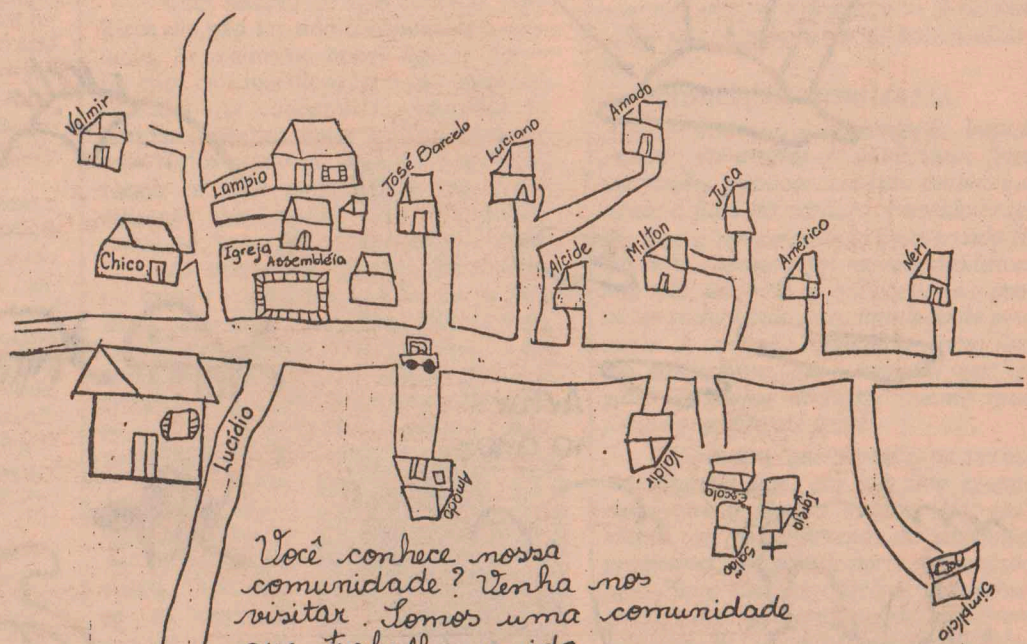 Valmir
Lampio
José Barcelo
Luciano
Amado
Juca
Chico
Igreja
Assembléia
Alcide
Milton
Américo
Neri
Lucidio
Amado
Valdir
Escola
Igreja
Salão
Simplicio
Você conhece nossa
comunidade? Venha nos
visitar. Somos uma comunidade